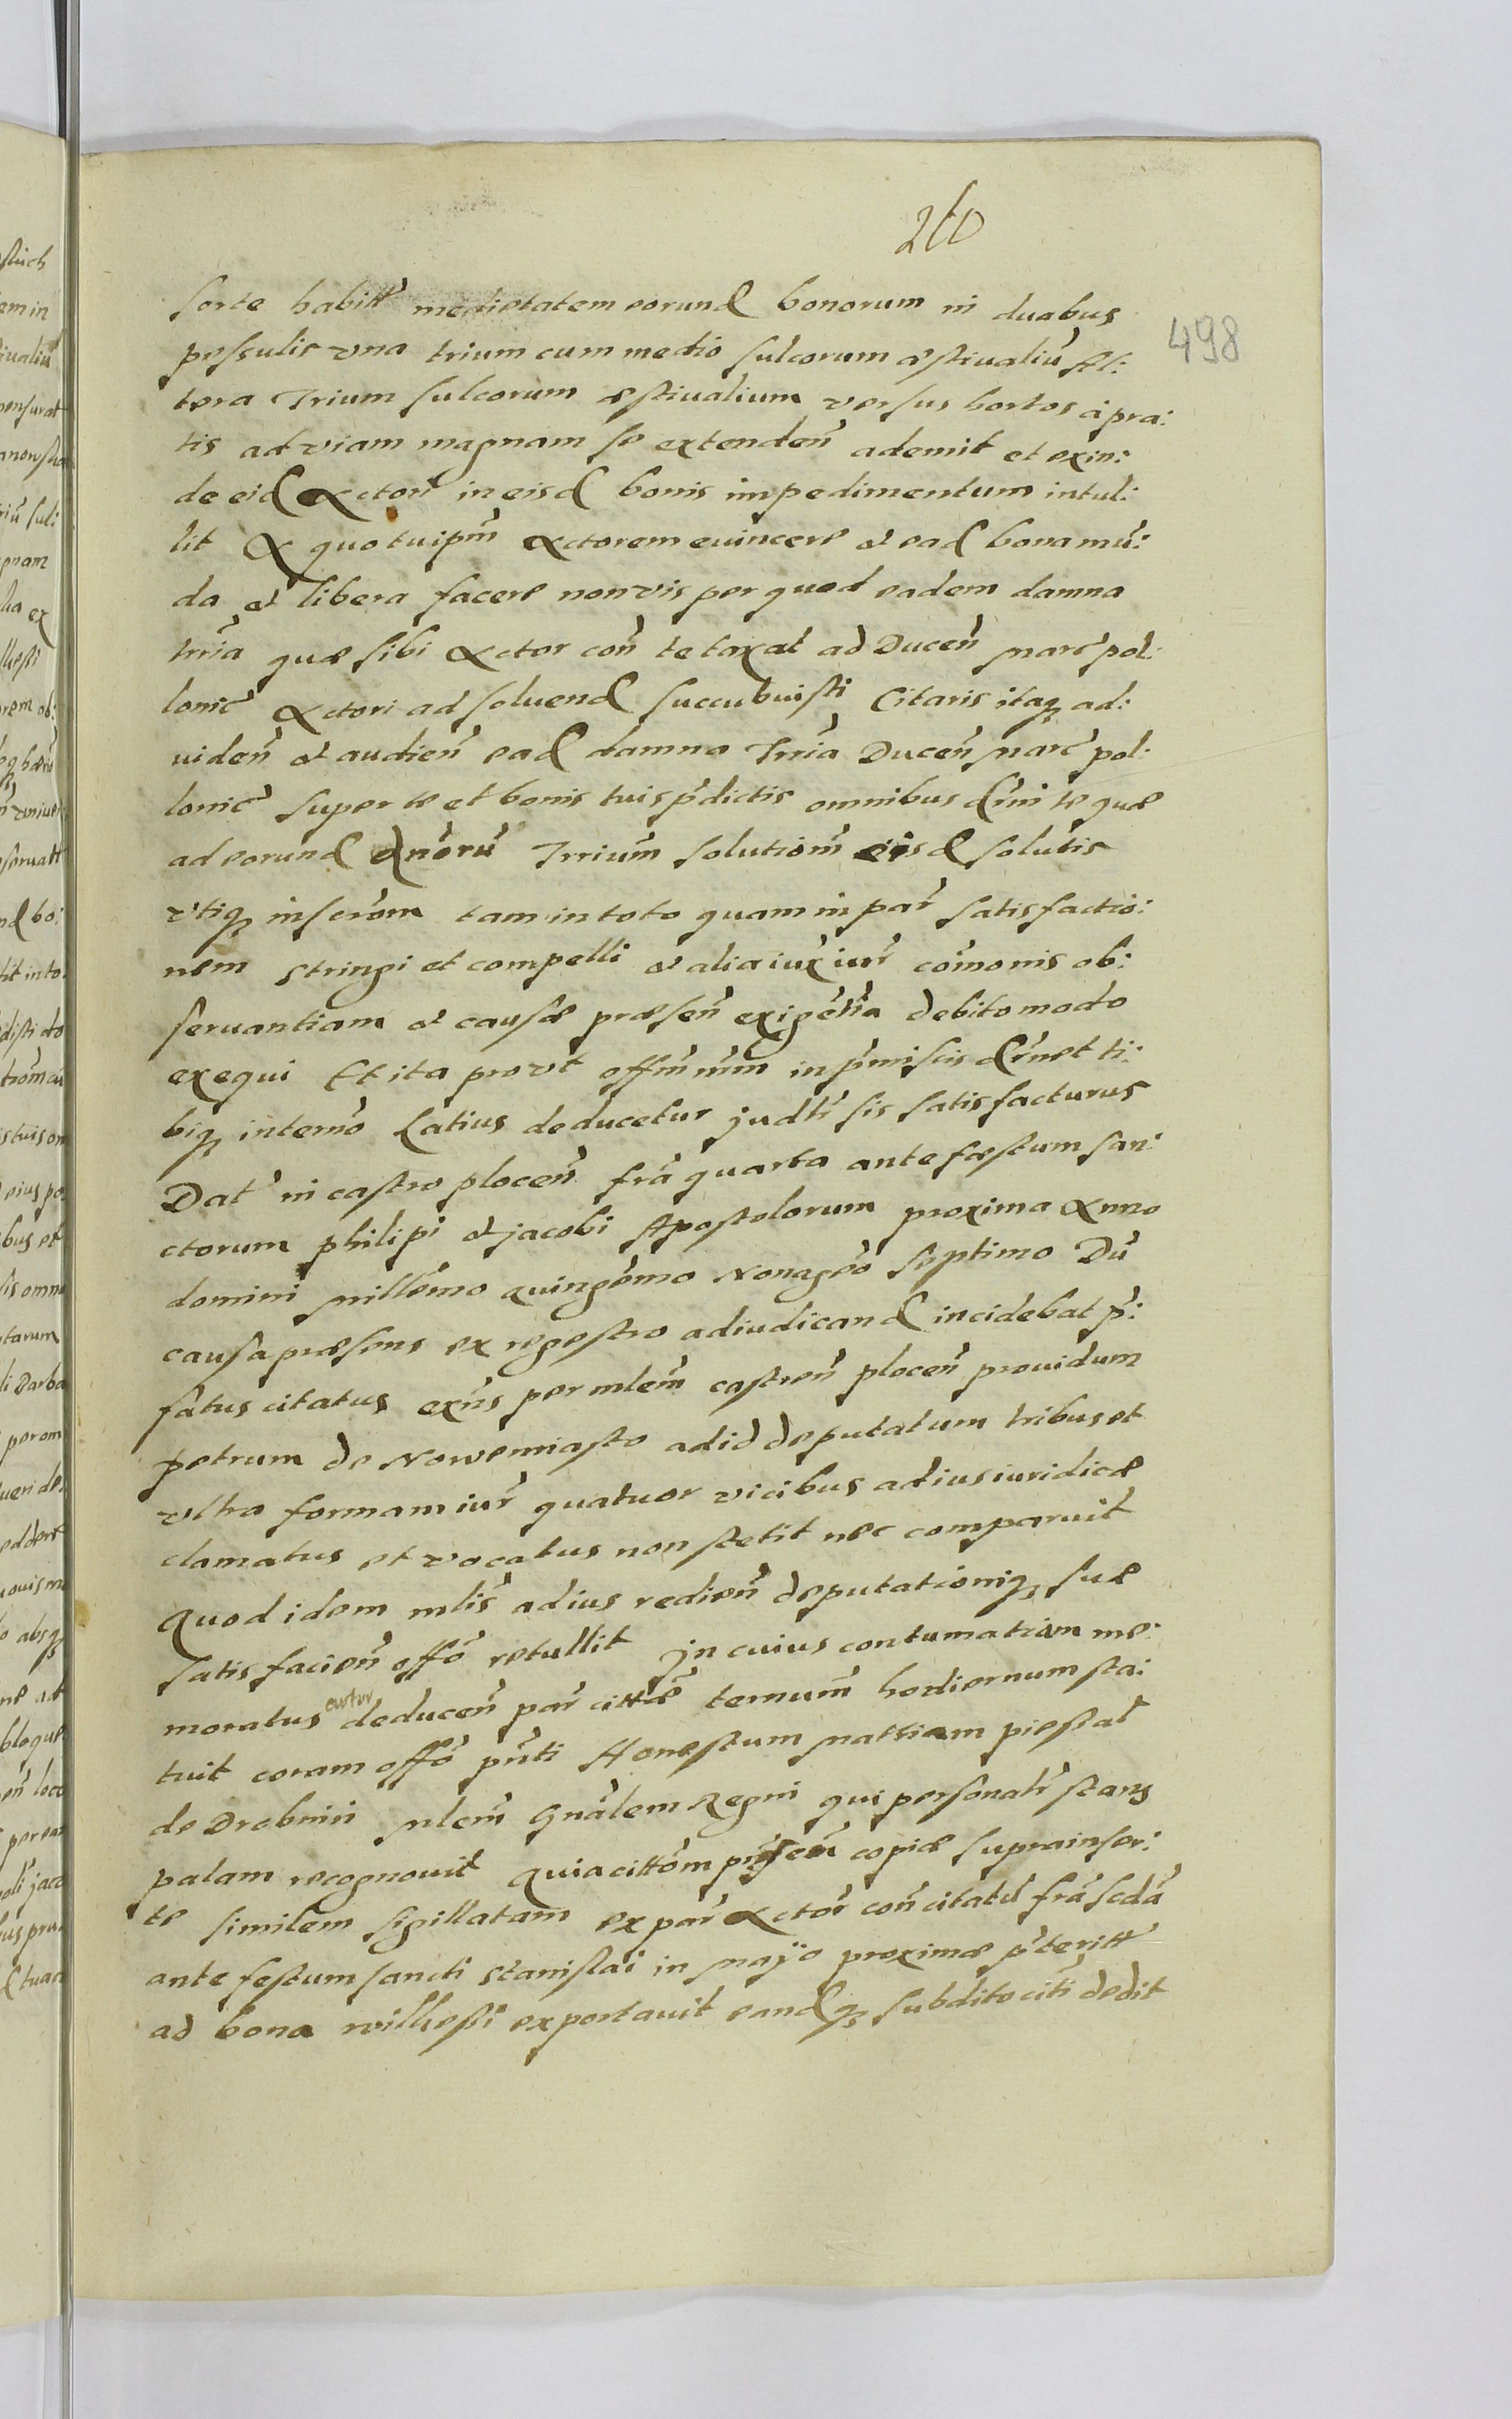 260
498
sorte habitt medietatem eorund bonorum in duabus
pessulis vna trium cum medio sulcorum æstiualiũ al:
tera Trium sulcorum æstiualium versus hortos à pra:
tis ad viam magnam se extendeñ ademit et exin:
de eid Actori in eisd bonis impedimentum intul:
lit Ex quo tu ipm̃ Actorem euincere et ead bona mũ:
da et libera facere non vis per quod eadem damna
trria quæ sibi Actor coñ te taxat ad Duceñ marc pol:
lonic Actori ad soluend succubuisti Citaris itaq ad:
uideñ et audieñ ead damna Trria Duceñ marc pol:
lonic super te et bonis tuis p̃dictis omnibus d̃rni te quæ
ad eorund dñorũ Trrium solutiom̃ eisd solutis
vtiq inferom tam in toto quam in par satisfactio:
nem stringi et compelli et alia iux iur cõmonis ob:
seruantiam et causæ præseñ exigẽtia debito modo
exequi Et ita prout offm̃ nrm in p̃missis d̃rnet ti:
biq in termõ Latius deducetur judtr sis satisfacturus
Dat in castro ploceñ frã quarta ante fæstum san:
ctorum philipi et jacobi Apostolorum proxima Anno
domini millẽmo quingẽmo Nonagẽo septimo Dũ
causa præsens ex regestro adiudicand incidebat p̃:
fatus citatus exñs per mlem̃ castreñ ploceñ prouidum
petrum de Nowemiasto ad id deputatum tribus et
vltra formam iur quatuor vicibus ad ius iuridicæ
clamatus et vocatus non stetit nec comparuit
Quod idem mlis ad ius redieñ deputationiq suæ
satisfacieñ offõ retullit Jn cuius contumatiam me:
moratus actor deduceñ par cittæ termum̃ hodiernum sta:
tuit coram offõ pñti Honestum mattiam piestat
de Drobnin mlem̃ Gnãlem Regni qui personalr stans
palam recognouit Quia cittom̃ pñseñ copiæ suprainser:
te similem sigillatam ex par Actor coñ citatũ frã scdã
ante festum sancti stanislai in mayo proximæ p̃teritt
ad bona willesti exportauit eandq subdito citi dedit